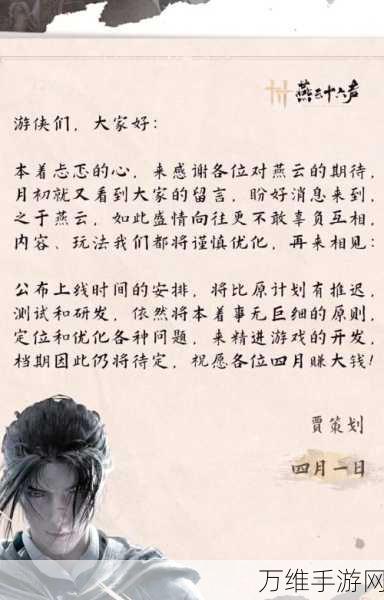 燕云十六声
游侠们，大家好：
本着忐忑的心，来感谢各位对燕云的期待，
月初就又看到大家的留言，盼好消息来到，
之于燕云，如此盛情向往更不敢辜负互相，
内容、玩法我们都将谨慎优化，再来相见：
公布上线时间的安排，将比原计划有推迟，
测试和研发，依然将本着事无巨细的原则，
定位和优化各种问题，来精进游戏的开发，
档期因此仍将待定，祝愿各位四月赚大钱！
贾策划
四月一日
万维手游网